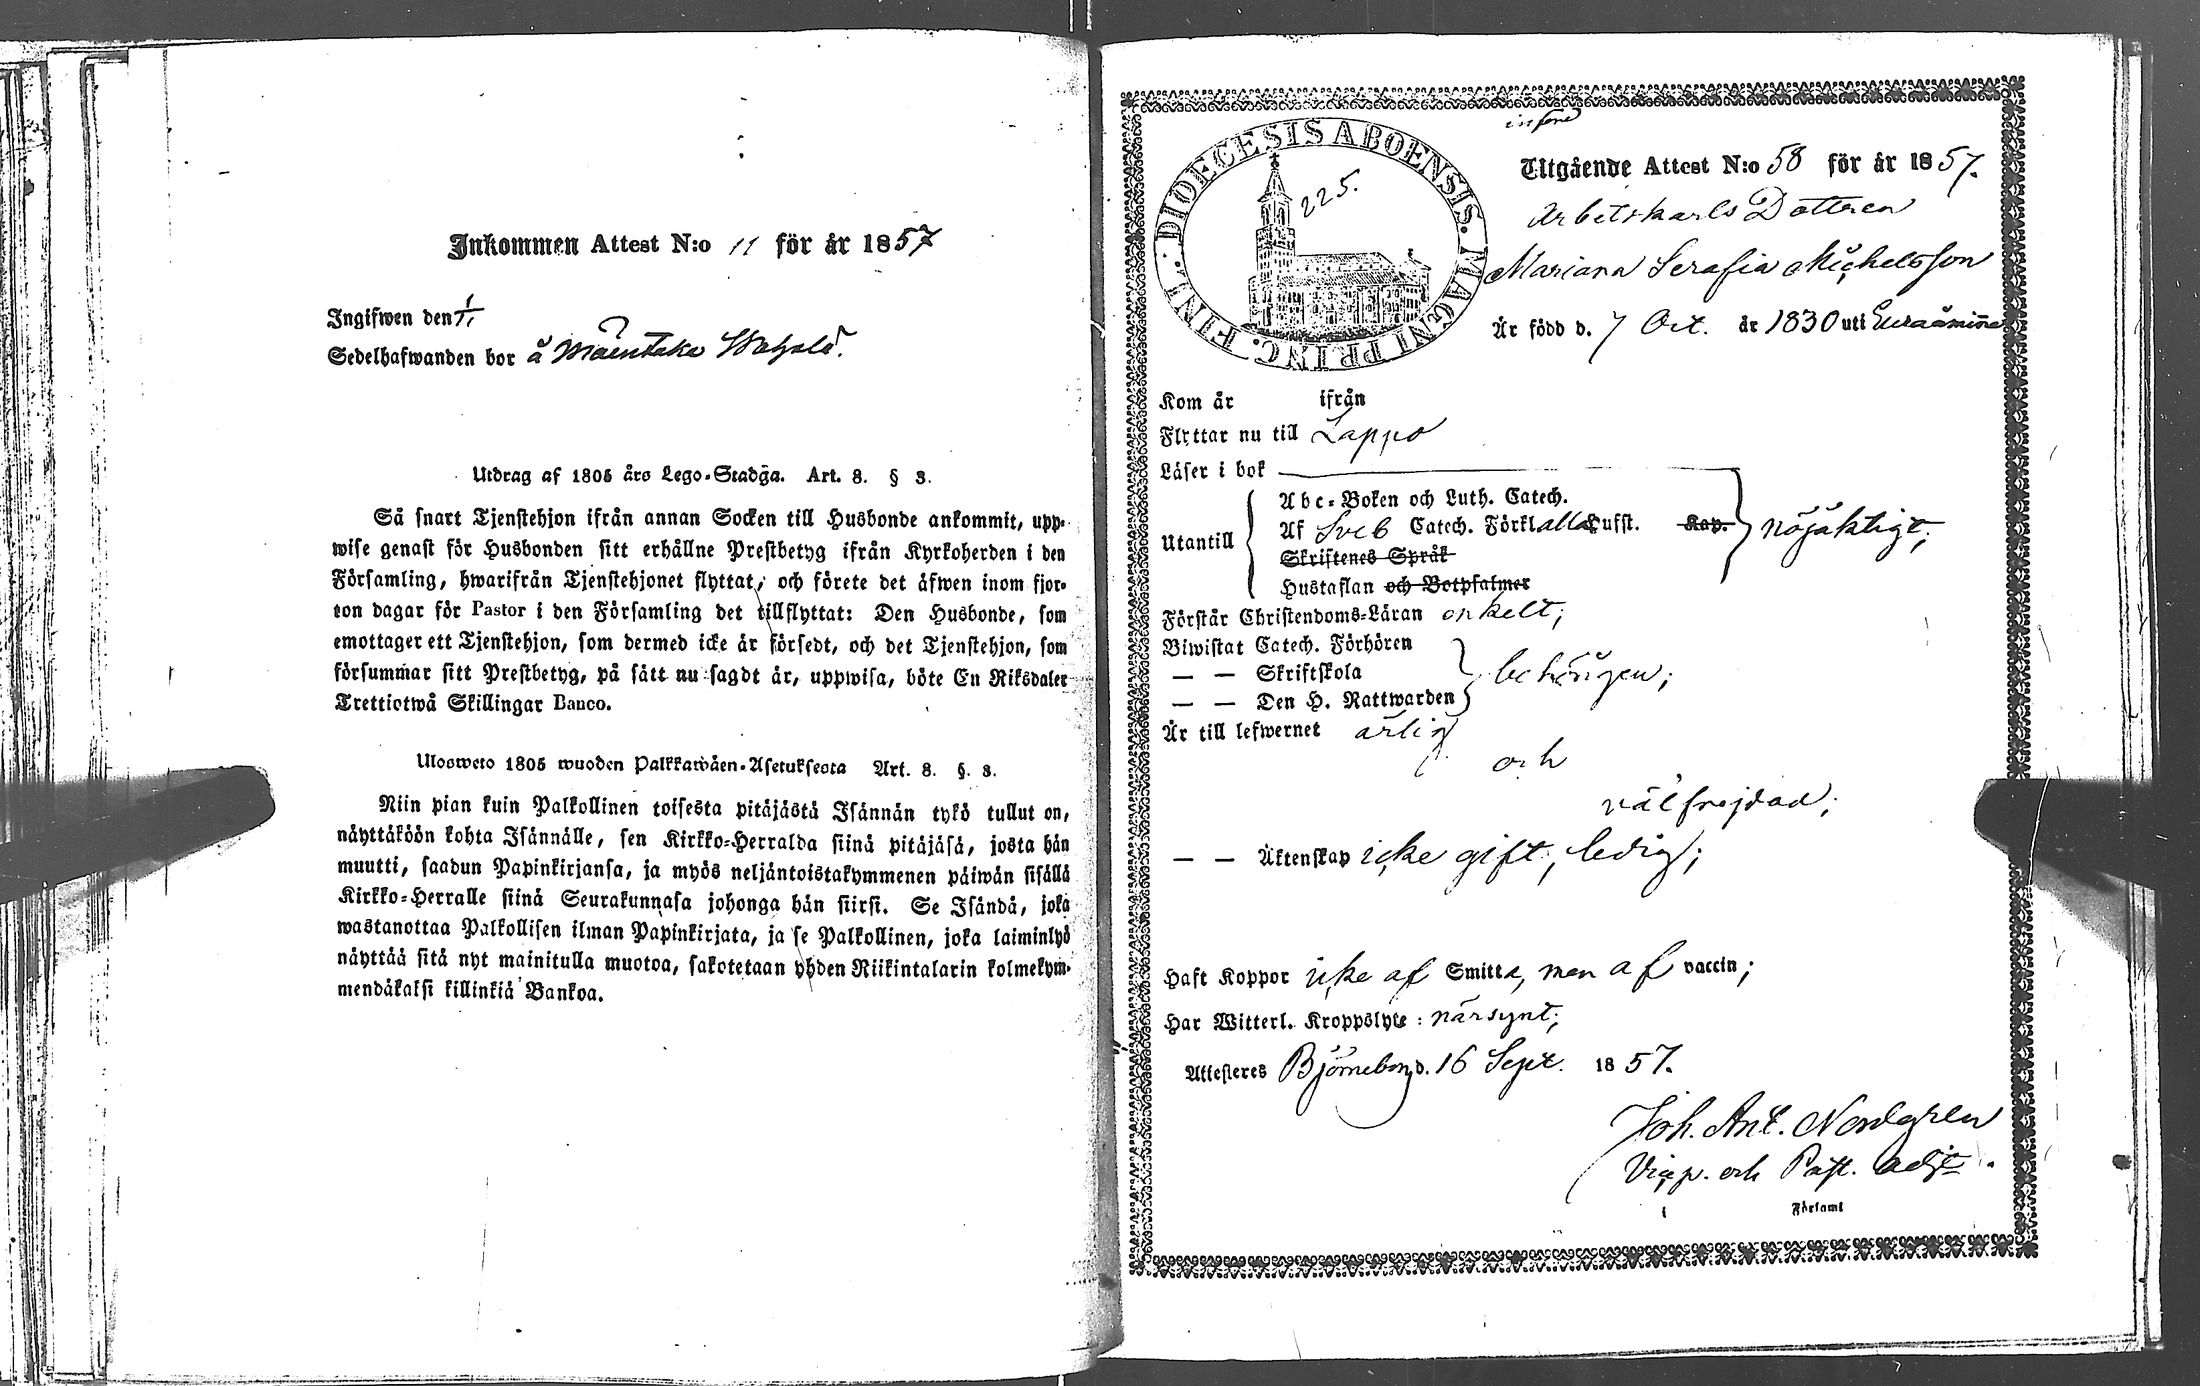 Inkommen Attest N:o 11 för år 1857
Ingifwen den 1/1
Sedelhafwanden bor å
Utdrag af 1805 års Lego-Stadga. Art. 8. § 3.
Så snart Tjenstehjon ifrån annan Socken till Husbonde ankommit, upp-
wise genast för Husbonden sitt erhållne Prestbetyg ifrån Kyrkoherden i den
Församling, hwarifrån Tjenstehjonet flyttat, och förete det äfwen inom fjor-
ton dagar för Pastor i den Församling det tillflyttat: Den Husbonde, som
emottager ett Tjenstehjon, som dermed icke är försedt, och det Tjenstehjon, som
försummar sitt Prestbetyg, på sätt nu sagdt är, uppwisa, böte En Riksdaler
Trettiotwå Skillingar Banco.
Ulosweto 1805 wuoden Palkkawäen-Asetuksesta Art. 8. §. 3.
Niin pian kuin Palkollinen toisesta pitäjästä Isännän tykö tullut on,
näyttäköön kohta Isännälle, sen Kirkko-Herralda siinä pitäjäsä, josta hän
muutti, saadun Papinkirjansa, ja myös neljäntoistakymmenen päiwän sisällä
Kirkko-Herralle siinä Seurakunnasa johonga hän siirsi. Se Isändä, joka
wastanottaa Palkollisen ilman Papinkirjata, ja se Palkollinen, joka laiminlyö
näyttää sitä nyt mainitulla muotoa, sakotetaan yhden Riikintalarin kolmekym-
mendäkaksi killinkiä Bankoa.
DIOECESIS ABOENSIS. MAGNI PRINC. FINL.
225.
Utgående Attest N:o 58 för år 1857.
Arbetskarls Dottren
Mariana Serafia Michelsson
Är född d. 7 Oct. år 1830 uti Euraåminne
Kom år ifrån
Flyttar nu till Lappo
Läser i bok
Utantill
Abc-Boken och Luth. Catech.
Af Sveb Catech. Förkl alla Lufst. Kap.
Skriftenes Språk
Hustaflan och Botpsalmer
nöjaktigt;
Förstår Christendoms-Läran enkelt;
Biwistat Catech. Förhören
— — Skriftskola
— — Den H. Nattwarden
behörigen;
Är till lefwernet ärlig
och
välfrejdad;
— — Äktenskap icke gift, ledig;
Haft Koppor icke af Smitta, men af vaccin;
Har Witterl. Kroppslyte: närsynt;
Attesteres Björneborg d. 16 Sept. 1857.
Joh. Ant. Nordgren
Vicp. och Past. adjt.
Församl